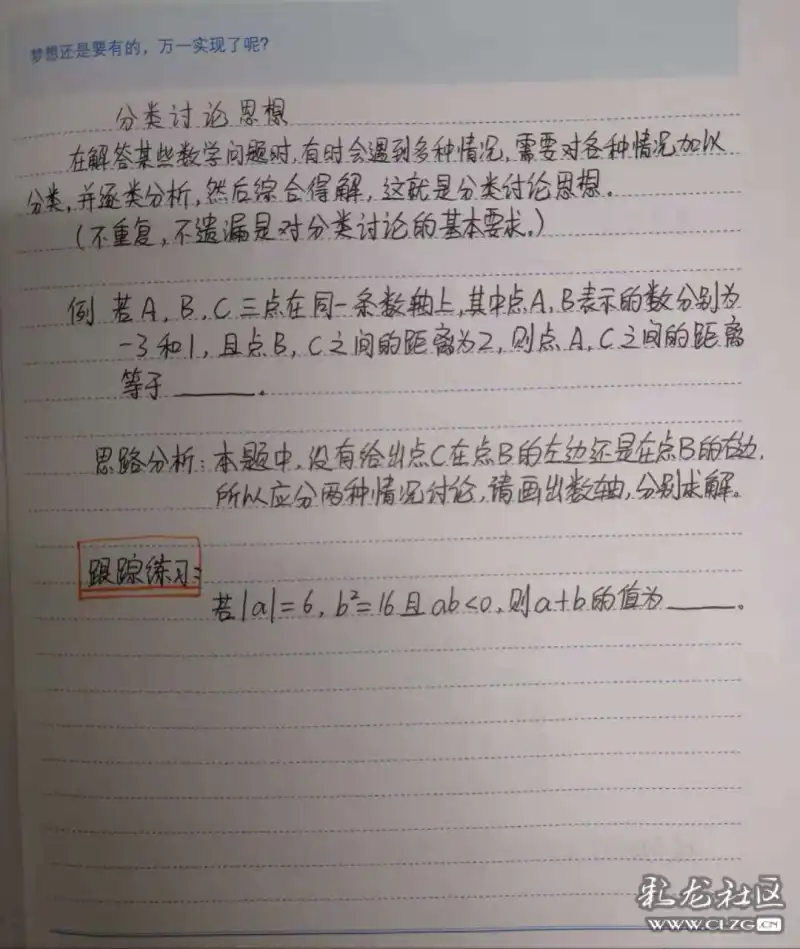 梦想还是要有的，万一实现了呢？
分类讨论思想
在解答某些数学问题时，有时会遇到多种情况，需要对各种情况加以
分类，并逐类分析，然后综合得解，这就是分类讨论思想。
（不重复，不遗漏是对分类讨论的基本要求。）
例 若A，B，C三点在同一条数轴上，其中点A，B表示的数分别为
-3和1，且点B，C之间的距离为2，则点A，C之间的距离
等于______.
思路分析：本题中，没有给出点C在点B的左边还是在点B的右边，
所以应分两种情况讨论，请画出数轴，分别求解。
跟踪练习：
若|a|=6，b²=16且ab<0，则a+b的值为______.
彩龙社区
WWW.CLZG.CN